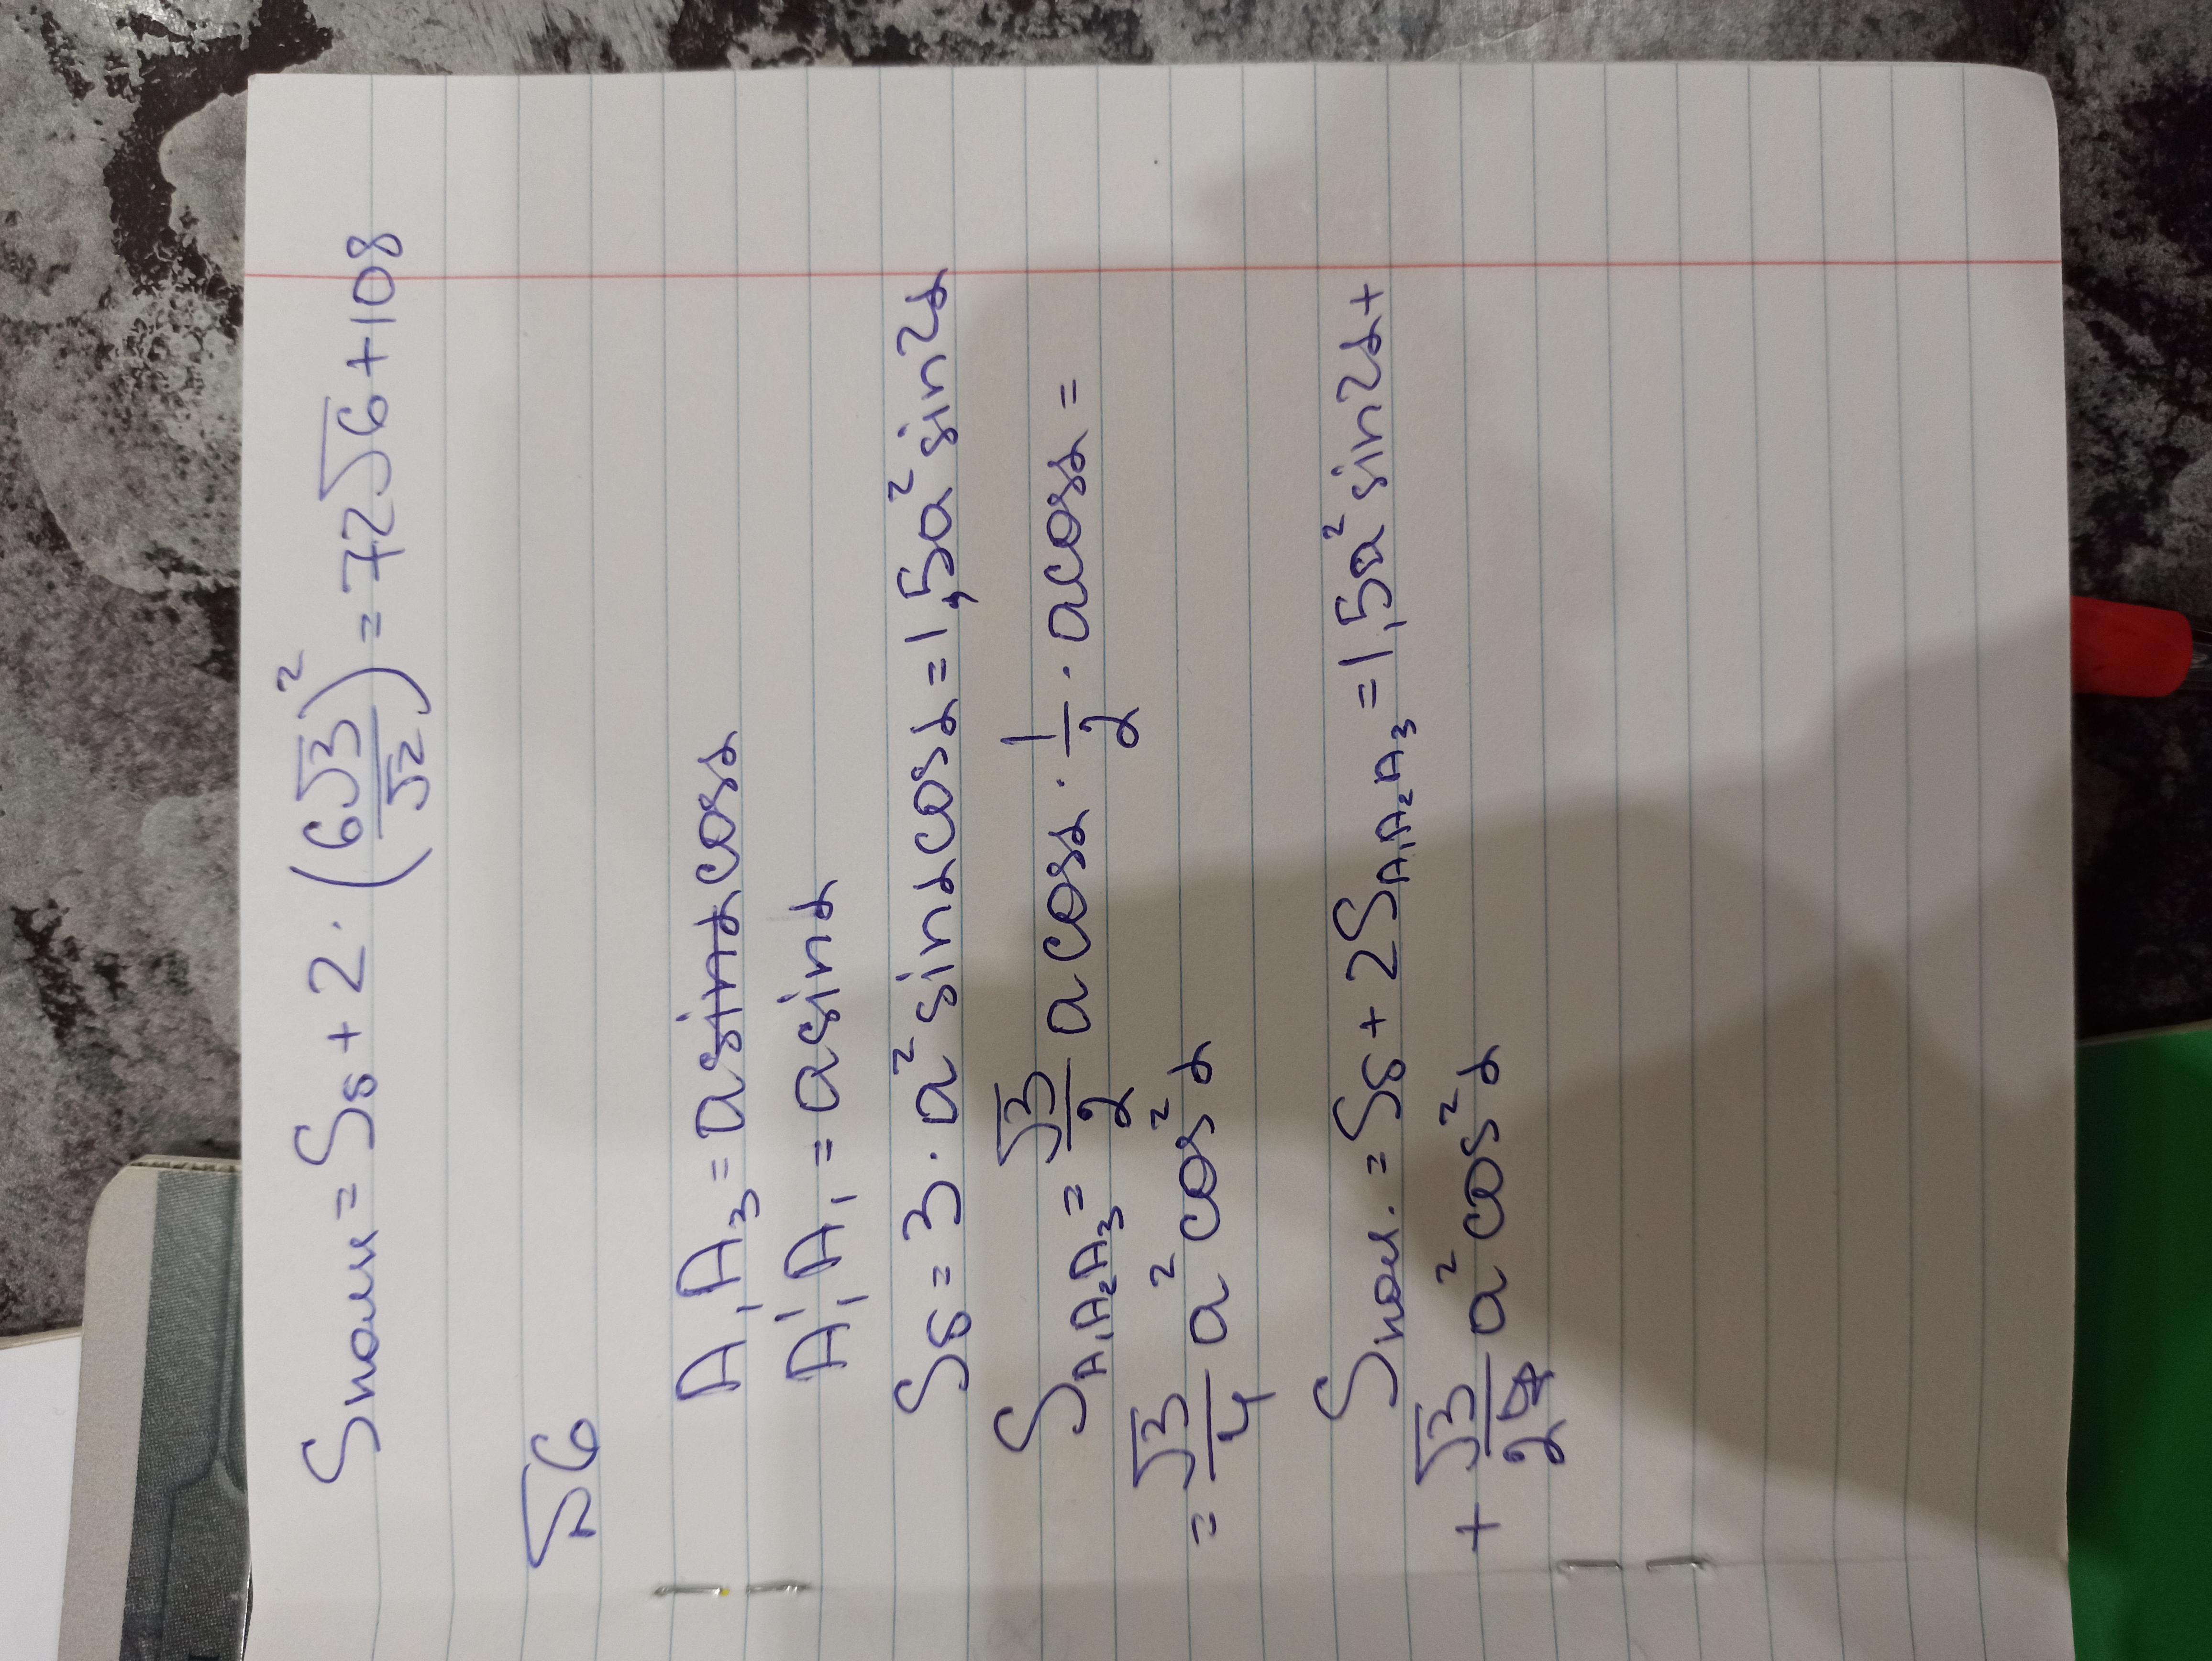 Sполн = Sб + 2 · (6√3/√2)² = 72√6 + 108
√6
A₁A₃ = a cosα
A₁'A₁ = a sinα
Sб = 3 · a² sinα cosα = 1,5a² sin2α
S_A₁A₂A₃ = √3/2 a cosα · 1/2 · a cosα =
= √3/4 a² cos² α
Sпол. = Sб + 2S_A₁A₂A₃ = 1,5a² sin2α +
+ √3/2 a² cos² α